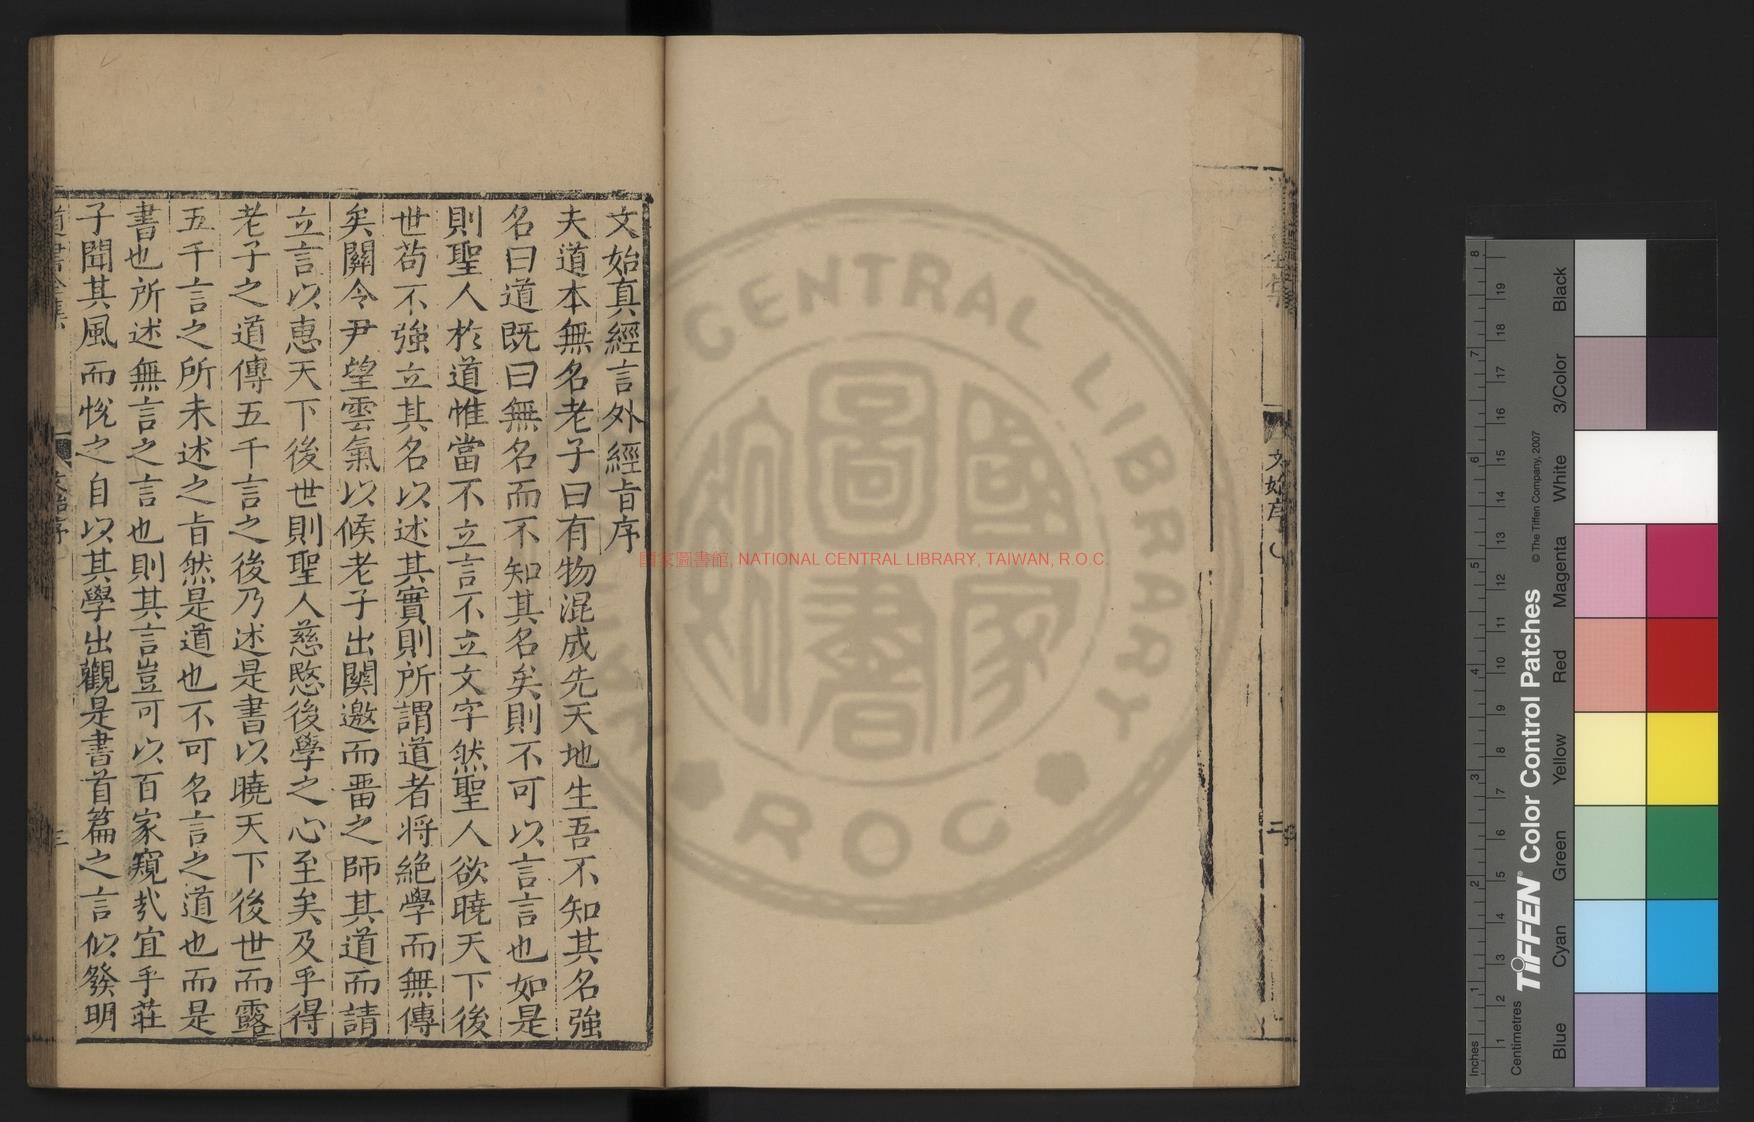 文始真經言外經旨序
夫道本無名老子曰有物混成先天地生吾不知其名強
名曰道既曰無名而不知其名矣則不可以言言也如是
則聖人於道惟當不立言不立文字然聖人欲曉天下後
世苟不強立其名以述其實則所謂道者将絶學而無傳
矣關令尹望雲氣以候老子出關邀而畱之師其道而請
立言以惠天下後世則聖人慈愍後學之心至矣及乎得
老子之道傳五千言之後乃述是書以曉天下後世而露
五千言之所未述之旨然是道也不可名言之道也而是
書也所述無言之言也則其言豈可以百家窺㢤宜乎莊
子聞其風而悅之自以其學出觀是書首篇之言似發明
道書全集
文始序
三
文始序
二
國家圖書館, NATIONAL CENTRAL LIBRARY, TAIWAN, R.O.C.
CENTRAL LIBRARY
R O C
國家圖書
Inches
Centimetres
TIFFEN® Color Control Patches
© The Tiffen Company, 2007
Blue
Cyan
Green
Yellow
Red
Magenta
White
3/Color
Black